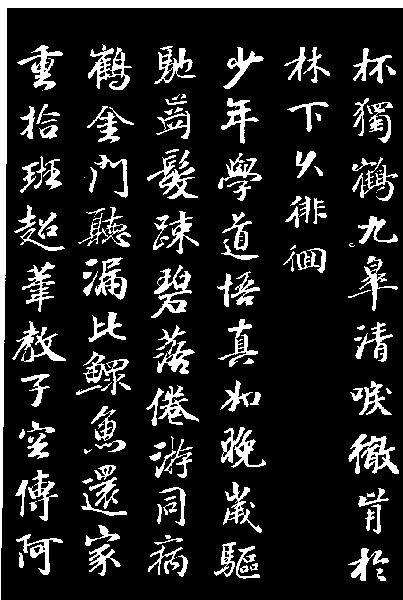 杯獨鶴九皐清唳徹於
林下久徘佪
少年學道悟真如晚歲驅
馳齒髮疎碧落倦游同病
鶴金門聽漏比鰥魚還家
重拾班超筆教子空傳阿